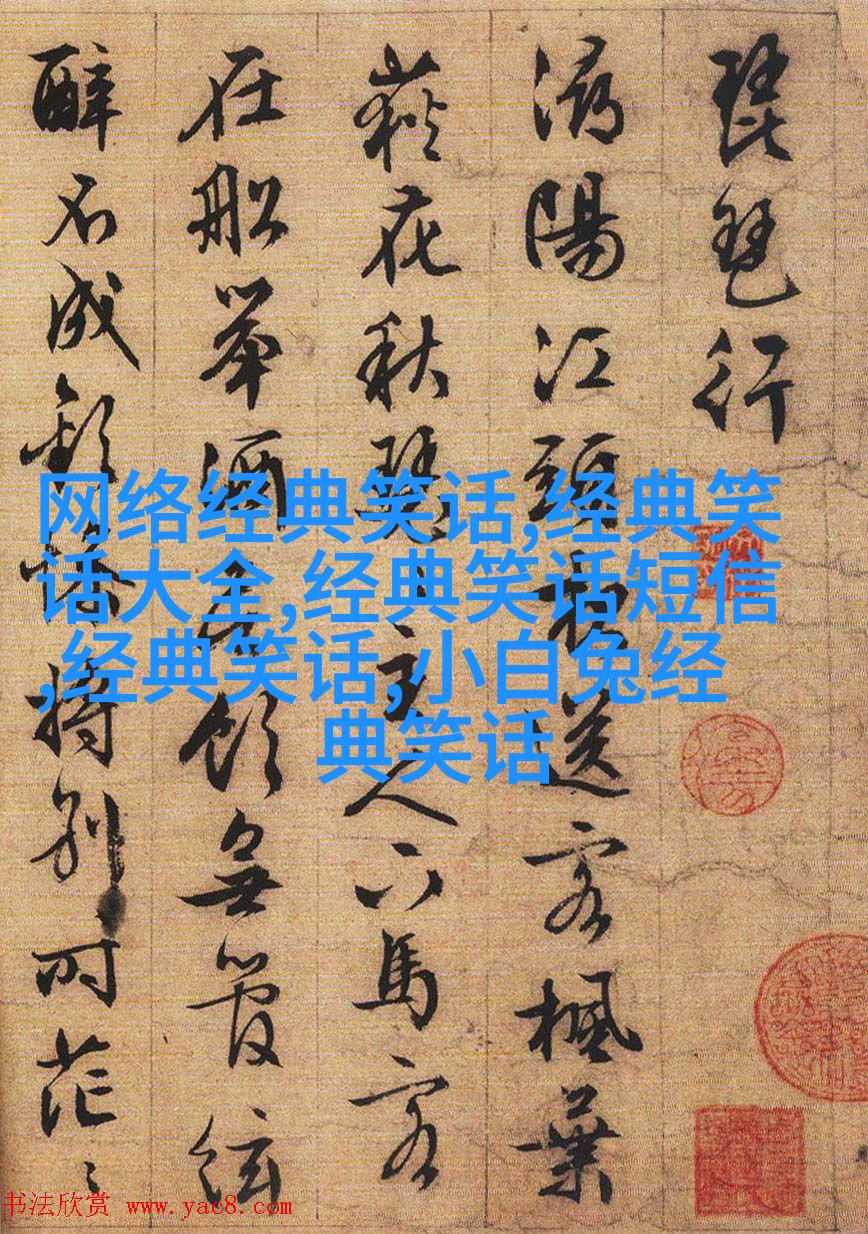 琵琶行
潯陽江頭夜送客楓葉
荻花秋瑟々主人下馬客
在船舉酒欲飲無管絃
醉不成歡慘將別時茫々
网络经典笑话,经典笑
话大全,经典笑话短信
,经典笑话,小白兔经
典笑话
书法欣赏 www.yac8.com